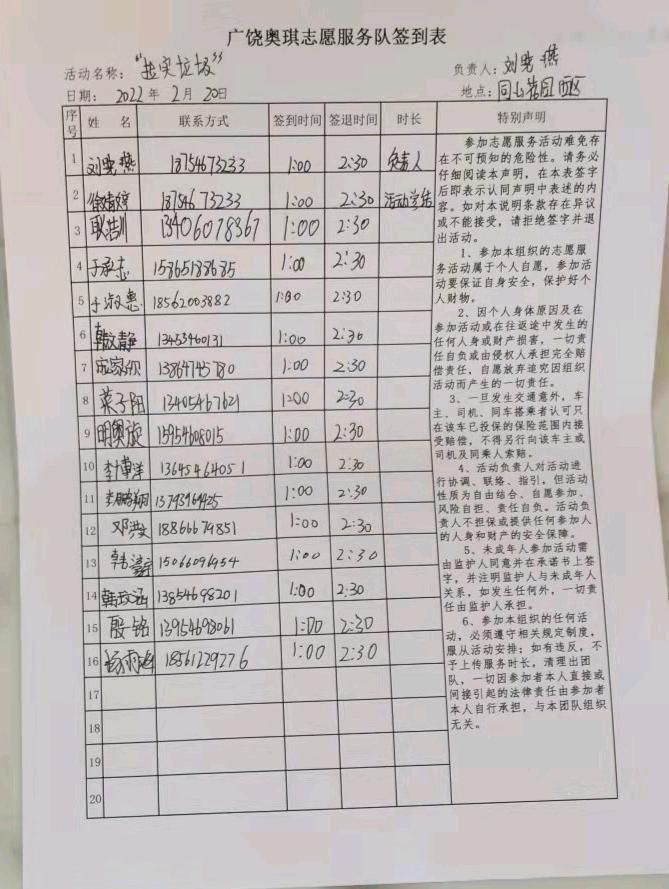 广饶奥琪志愿服务队签到表
活动名称：“捡实垃圾”
负责人：刘晓燕
日期： 2022 年 2 月 20日
地点：同山花园西区
序号 姓 名 联系方式 签到时间 签退时间 时长 特别声明
1 刘晓燕 18754673233 1:00 2:30 负责人
2 18754673233 1:00 2:30 活动总结
3 耿浩川 13406078367 1:00 2:30
4 于承志 15865188685 1:00 2:30
5 于淑惠 18562003882 1:00 2:30
6 韩文静 13453460131 1:00 2:30
7 13864745780 1:00 2:30
8 菜子阳 13405467621 1:00 2:30
9 明奥旋 15954608015 1:00 2:30
10 李博洋 13645464051 1:00 2:30
11 李鹏翔 1:00 2:30
12 邓洪文 18866674851 1:00 2:30
13 15066096954 1:00 2:30
14 韩政涵 13854698201 1:00 2:30
15 殷铭 13954698061 1:00 2:30
16 杨雨 18561229276 1:00 2:30
17
18
19
20
参加志愿服务活动难免存
在不可预知的危险性。请务必
仔细阅读本声明，在本表签字
后即表示认同声明中表述的内
容。如对本说明条款存在异议
或不能接受，请拒绝签字并退
出活动。
1、参加本组织的志愿服
务活动属于个人自愿，参加活
动要保证自身安全，保护好个
人财物。
2、因个人身体原因及在
参加活动或在往返途中发生的
任何人身或财产损害，一切责
任自负或由侵权人承担完全赔
偿责任，自愿放弃追究因组织
活动而产生的一切责任。
3、一旦发生交通意外，车
主、司机、同车搭乘者认可只
在该车已投保的保险范围内接
受赔偿，不得另行向该车主或
司机及同乘人索赔。
4、活动负责人对活动进
行协调、联络、指引，但活动
性质为自由结合、自愿参加、
风险自担、责任自负。活动负
责人不担保或提供任何参加人
的人身和财产的安全保障。
5、未成年人参加活动需
由监护人同意并在承诺书上签
字，并注明监护人与未成年人
关系，如发生任何外，一切责
任由监护人承担。
6、参加本组织的任何活
动，必须遵守相关规定制度，
服从活动安排；如有违反，不
予上传服务时长，清理出团
队，一切因参加者本人直接或
间接引起的法律责任由参加者
本人自行承担，与本团队组织
无关。